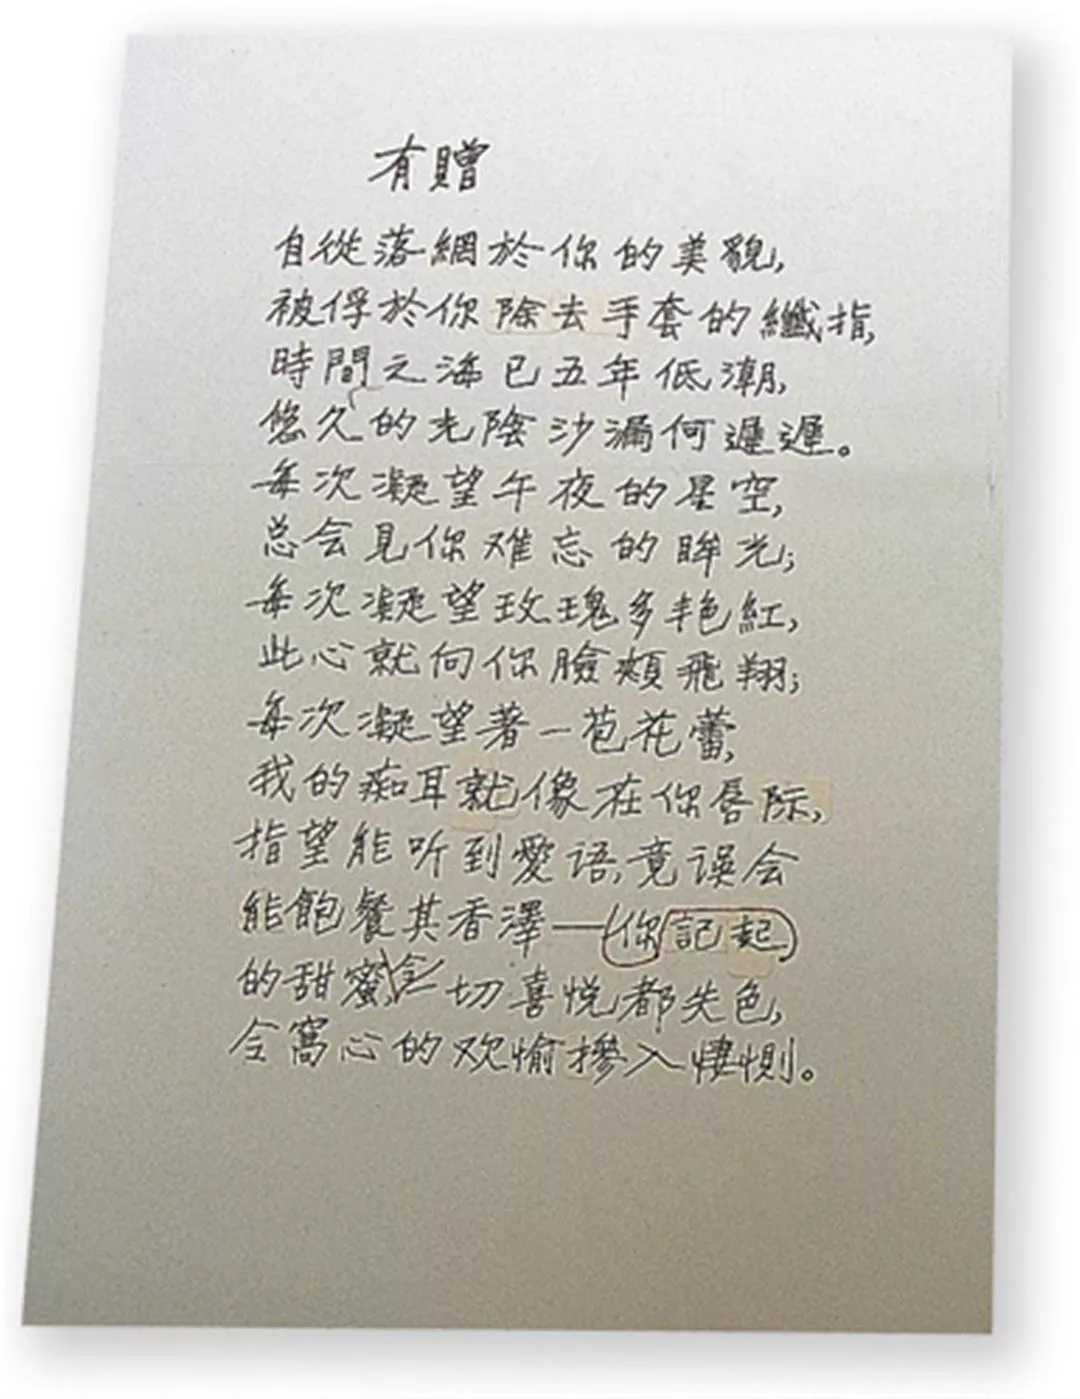 有贈
自從落網於你的美貌,
被俘於你除去手套的纖指,
時間之海已五年低潮,
悠久的光陰沙漏何遲遲。
每次凝望午夜的星空,
总会見你难忘的眸光;
每次凝望玫瑰多艳紅,
此心就向你臉頰飛翔;
每次凝望著一苞花蕾,
我的痴耳就像在你唇际,
指望能听到愛语,竟误会
能飽餐其香澤——你記起
的甜蜜,令一切喜悦都失色,
令窩心的欢愉摻入悽惻。